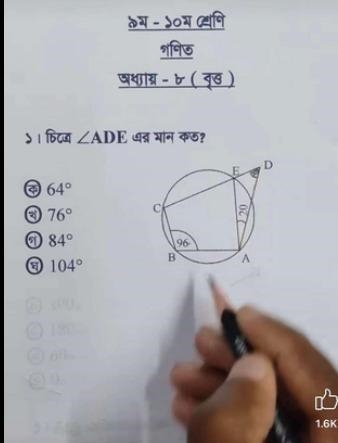 ৯ম - ১০ম শ্রেণি
গণিত
অধ্যায় - ৮ ( বৃত্ত )
১। চিত্রে ∠ADE এর মান কত?
ক 64°
খ 76°
গ 84°
ঘ 104°
D
E
C
20
96
B
A
1.6K